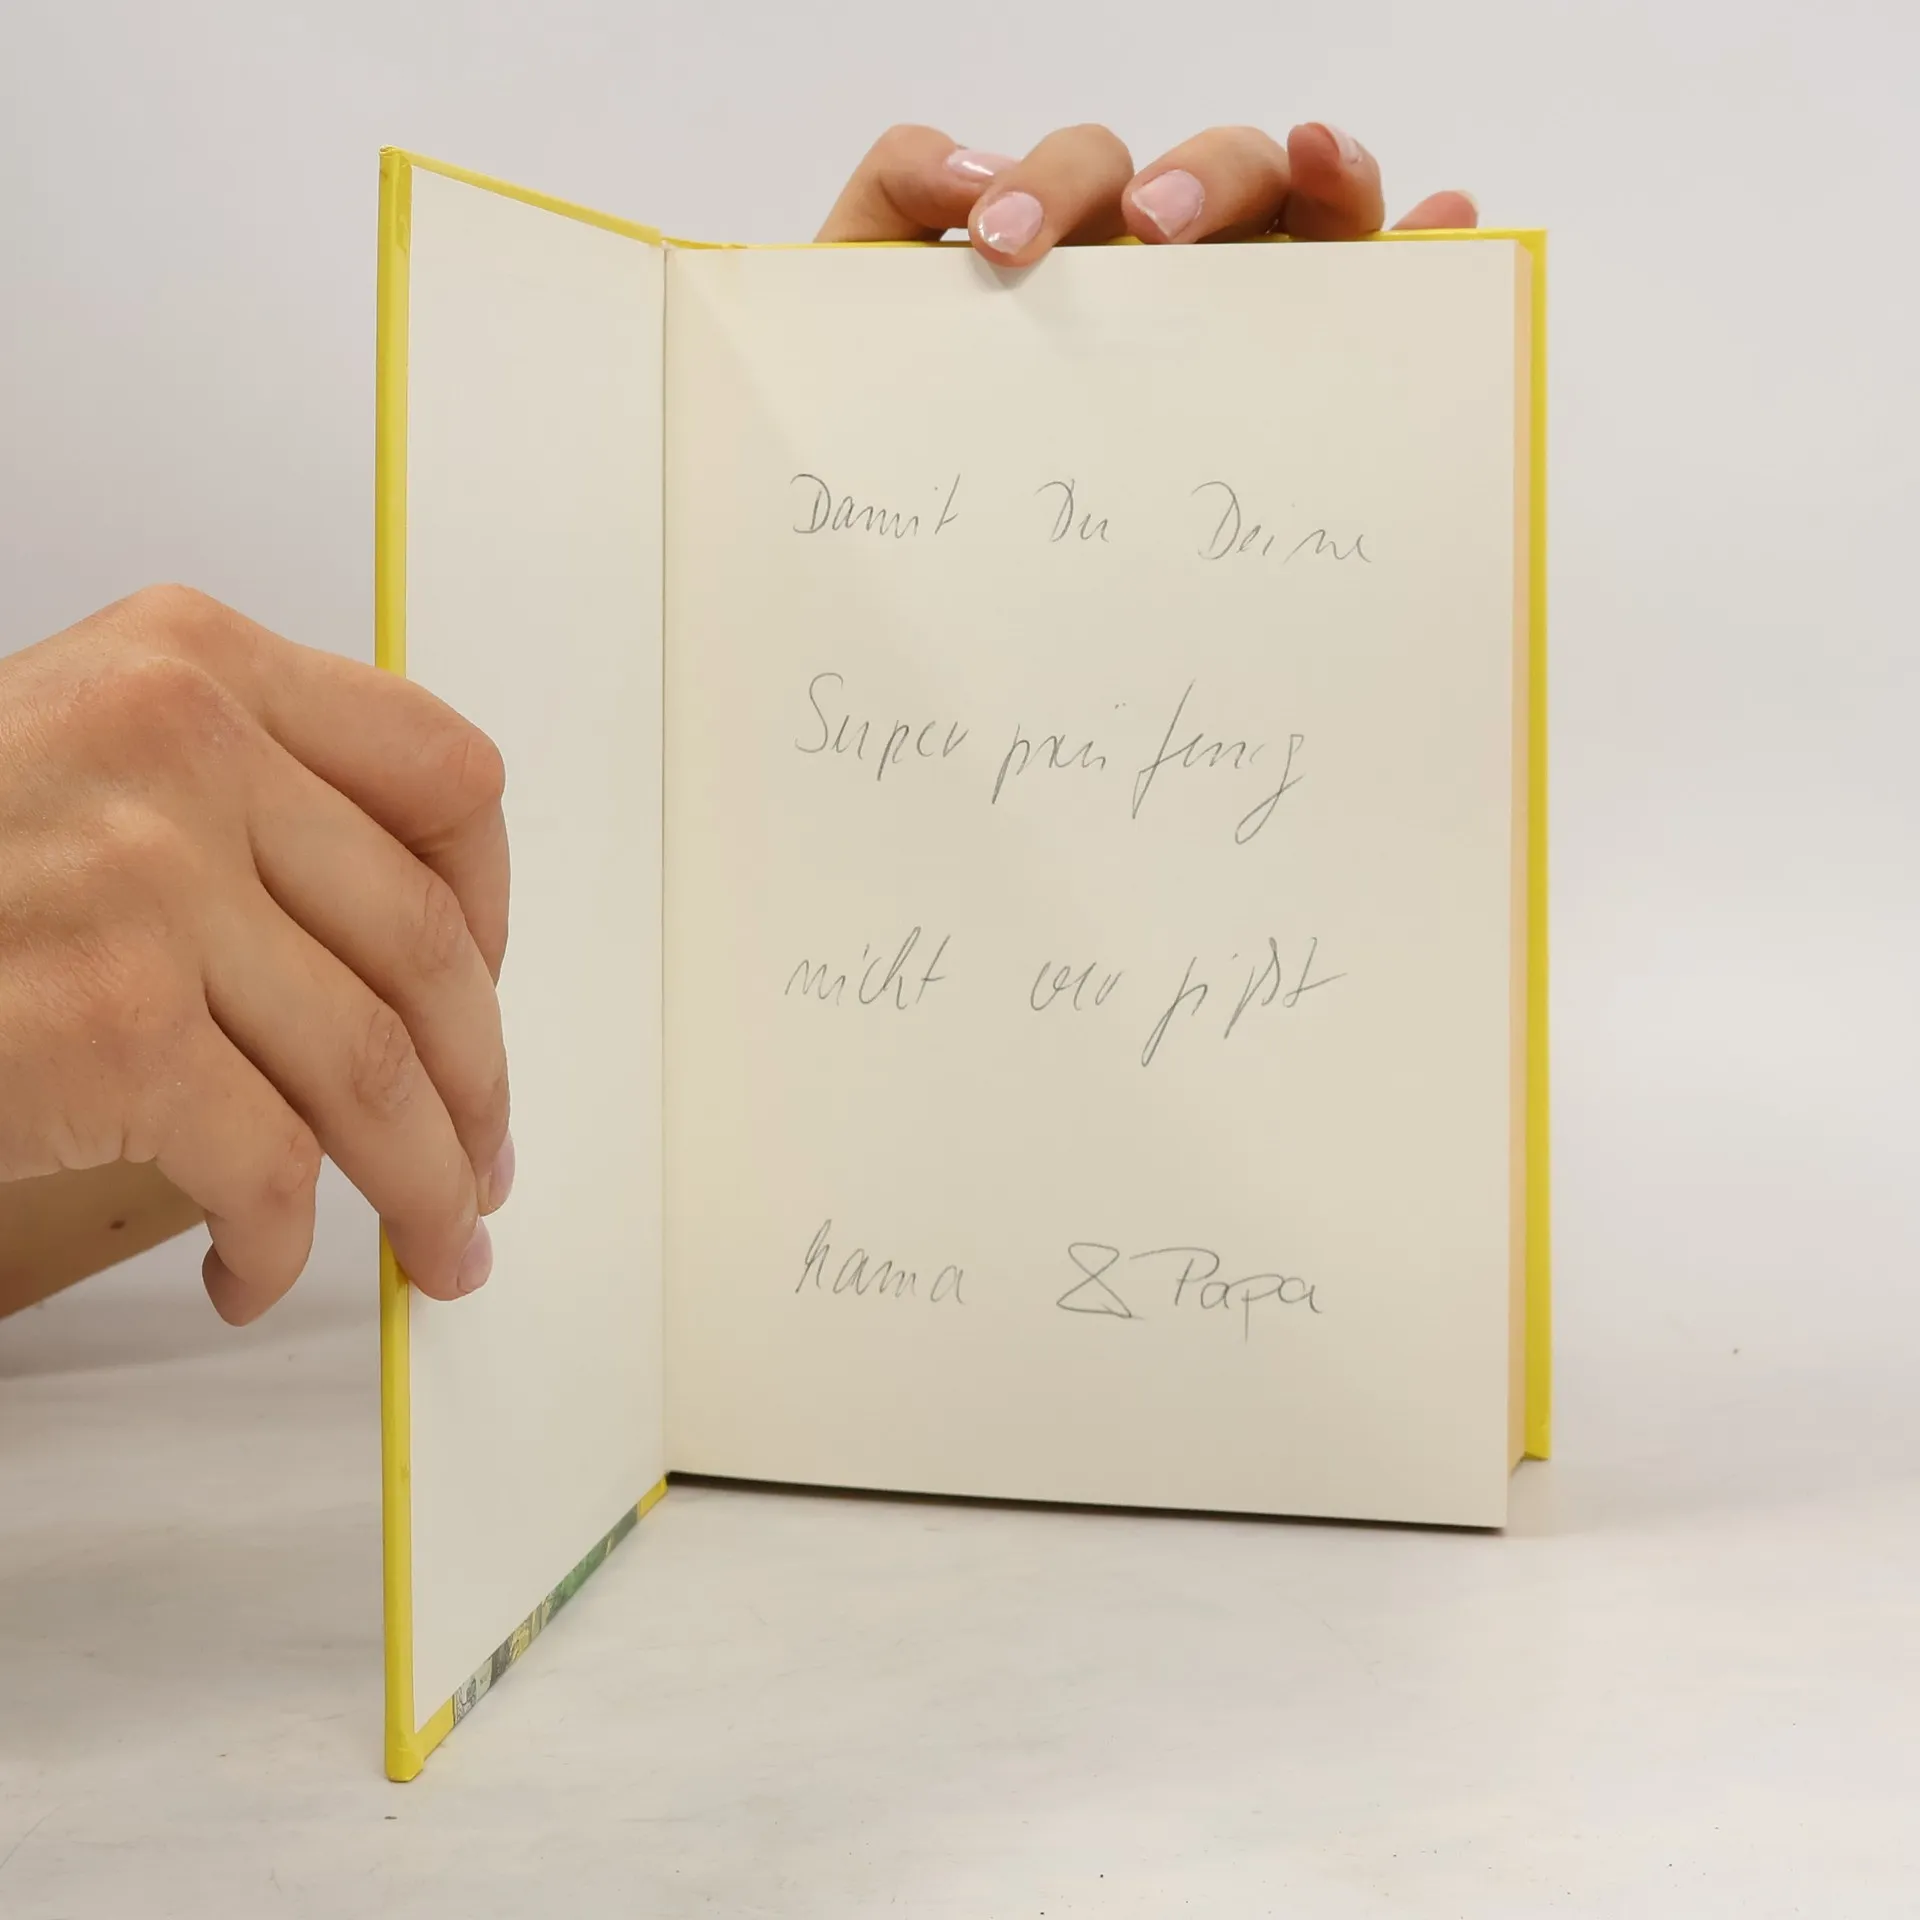 Damit Du Deine
Superprüfung
nicht vergißt
Mama & Papa